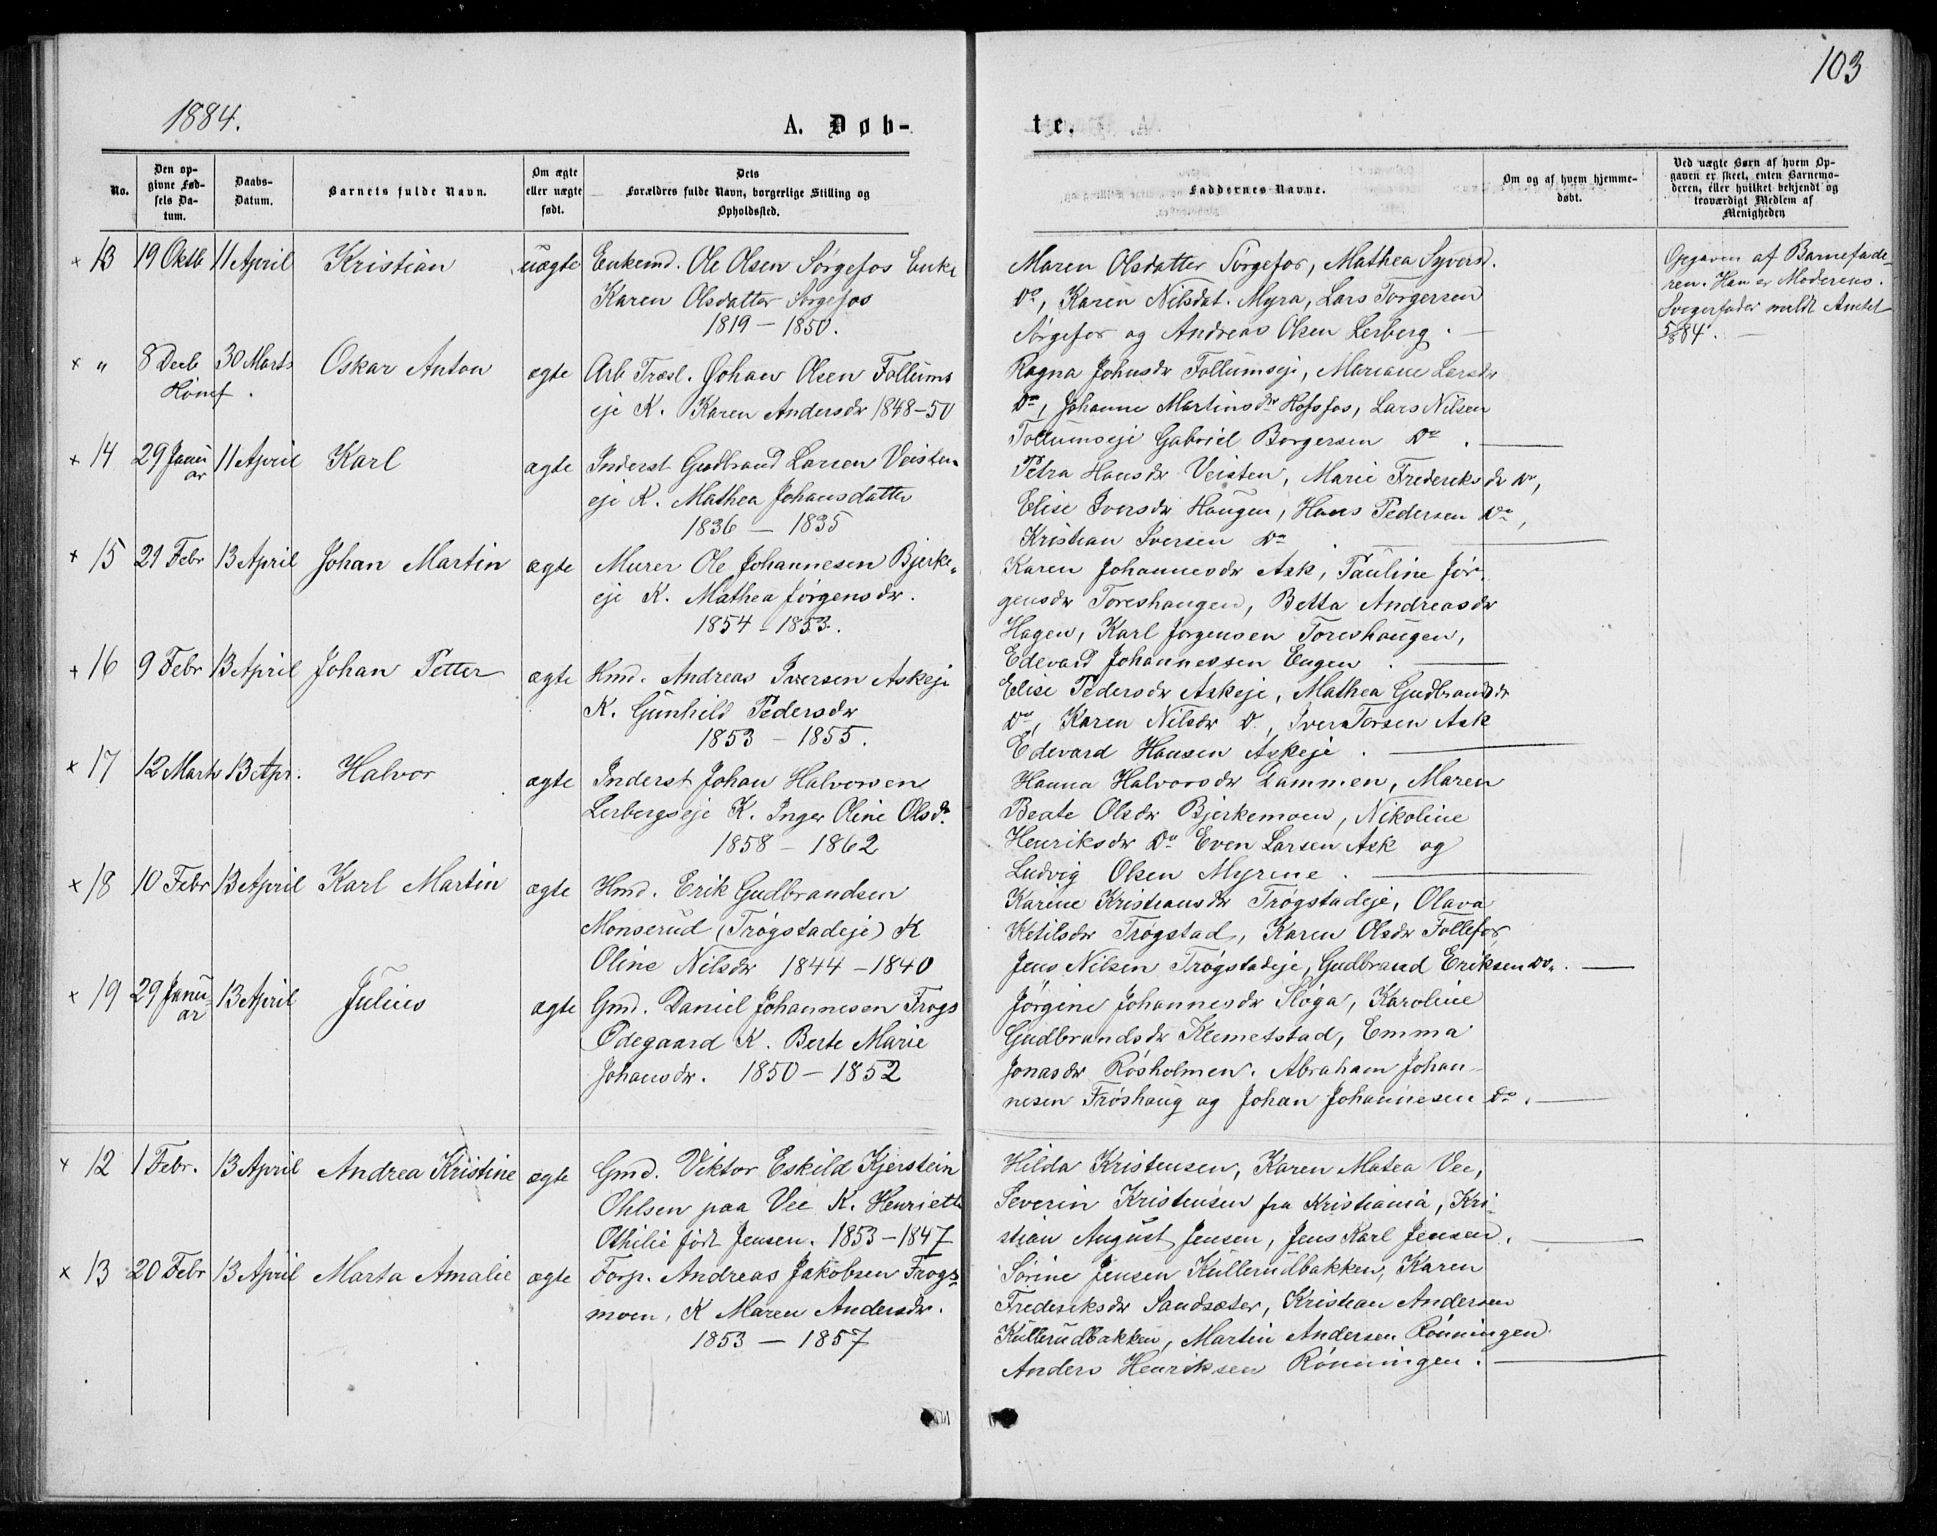 103
1884.
A. Døb-
te.
No.
Den op-
givne Fød-
sels Da-
tum.
Daabs-
Datum.
Barnets fulde Navn.
Om ægte
eller uægte
født.
Dets
Forældres fulde Navn, borgerlige Stilling og
Opholdssted.
Faddernes Navne.
Om og af hvem hjemme-
døbt.
Ved uægte Børn af hvem Op-
gaven er skeet, enten Barnemo-
deren, eller hvilket bekjendt og
troværdigt Medlem af
Menigheden
× 13 19 Oktb 11 April Kristian uægte Enkemd. Ole Olsen Sørgefos Enke
Karen Olsdatter Sørgefos
1819 - 1850.
Maren Olsdatter Sørgefos, Mathea Syversd.
Do, Karen Nilsdat. Myra, Lars Torgersen
Sørgefos og Andreas Olsen Lerberg.
Opgaven af Barnefade-
ren. Han er Moderens
Svigerfader meldt Amtet
5/5 84.
× " 8 Decb 30 Marts Oskar Anton ægte Arb Træsl. Johan Olsen Follums
Hønef.
eje K. Karen Andersdr 1848-50
Ragna Johnsdr Follumseje, Mariane Larsdr
Do, Johanne Martinsdr Hofsfos, Lars Nilsen
Follumseje Gabriel Borgersen Do.
× 14 29 Janu 11 April Karl ægte Inderst Gudbrand Larsen Veisten
ar
eje K. Mathea Johansdatter
1836 - 1835
Petra Hansdr Veisten, Marie Frederiksdr Do,
Elise Iversdr Haugen, Hans Pedersen Do,
Kristian Iversen Do
× 15 21 Febr 13 April Johan Martin ægte Murer Ole Johannesen Bjerke-
eje K. Mathea Jørgensdr.
1854 - 1853.
Karen Johannesdr Ask, Pauline Jør-
gensdr Toreshaugen, Betta Andreasdr
Hagen, Karl Jørgensen Toreshaugen,
Edevard Johannessen Engen.
× 16 9 Febr 13 April Johan Petter ægte Hmd. Andreas Iversen Askeje
K. Gunhild Pedersdr
1853 - 1855.
Elise Pedersdr Askeje, Mathea Gudbrandsdr
Do, Karen Nilsdr D., Iver Torsen Ask
Edevard Hansen Askeje.
× 17 12 Marts 13 Apr. Halvor ægte Inderst Johan Halvorsen
Lerbergseje K. Inger Oline Olsdr.
1858 - 1862
Hanna Halvorsdr Dammen, Maren
Beate Olsdr Bjerkemoen, Nikoline
Henriksdr Do Even Larsen Ask og
Ludvig Olsen Myrene.
× 18 10 Febr 13 April Karl Martin ægte Hmd. Erik Gudbrandsen
Monserud (Trøgstadeje) K
Oline Nilsdr 1844 - 1840
Karine Kristiansdr Trøgstadeje, Olava
Ketilsdr Trøgstad, Karen Olsdr Follefos
Jens Nilsen Trøgstadeje, Gudbrand Eriksen Do.
× 19 29 Janu- 13 April Julius ægte Gmd. Daniel Johannesen Frogs
ar
Ødegaard K. Berte Marie
Johansdr. 1850 - 1852
Jørgine Johannesdr Sløga, Karoline
Gudbrandsdr Klemetstad, Emma
Jonasdr Røsholmen. Abraham Johan-
nesen Frøshaug og Johan Johannesen Do.
× 12 1 Febr. 13 April Andrea Kristine ægte Gmd. Viktor Eskild Kjerstein
Ohlsen paa Vee K. Henriette
Othilie født Jensen. 1853-1847
Hilda Kristensen, Karen Matea Vee,
Severin Kristensen fra Kristiania, Kri-
stian August Jensen, Jens Karl Jensen.
× 13 20 Febr 13 April Marta Amalie ægte Forp. Andreas Jakobsen Frogs-
moen, K Maren Andersdr.
1853 - 1857
Sørine Jensen Kullerudbakken, Karen
Frederiksdr Sandsæter, Kristian Andersen
Kullerudbakken, Martin Andersen Rønningen
Anders Henriksen Rønningen.